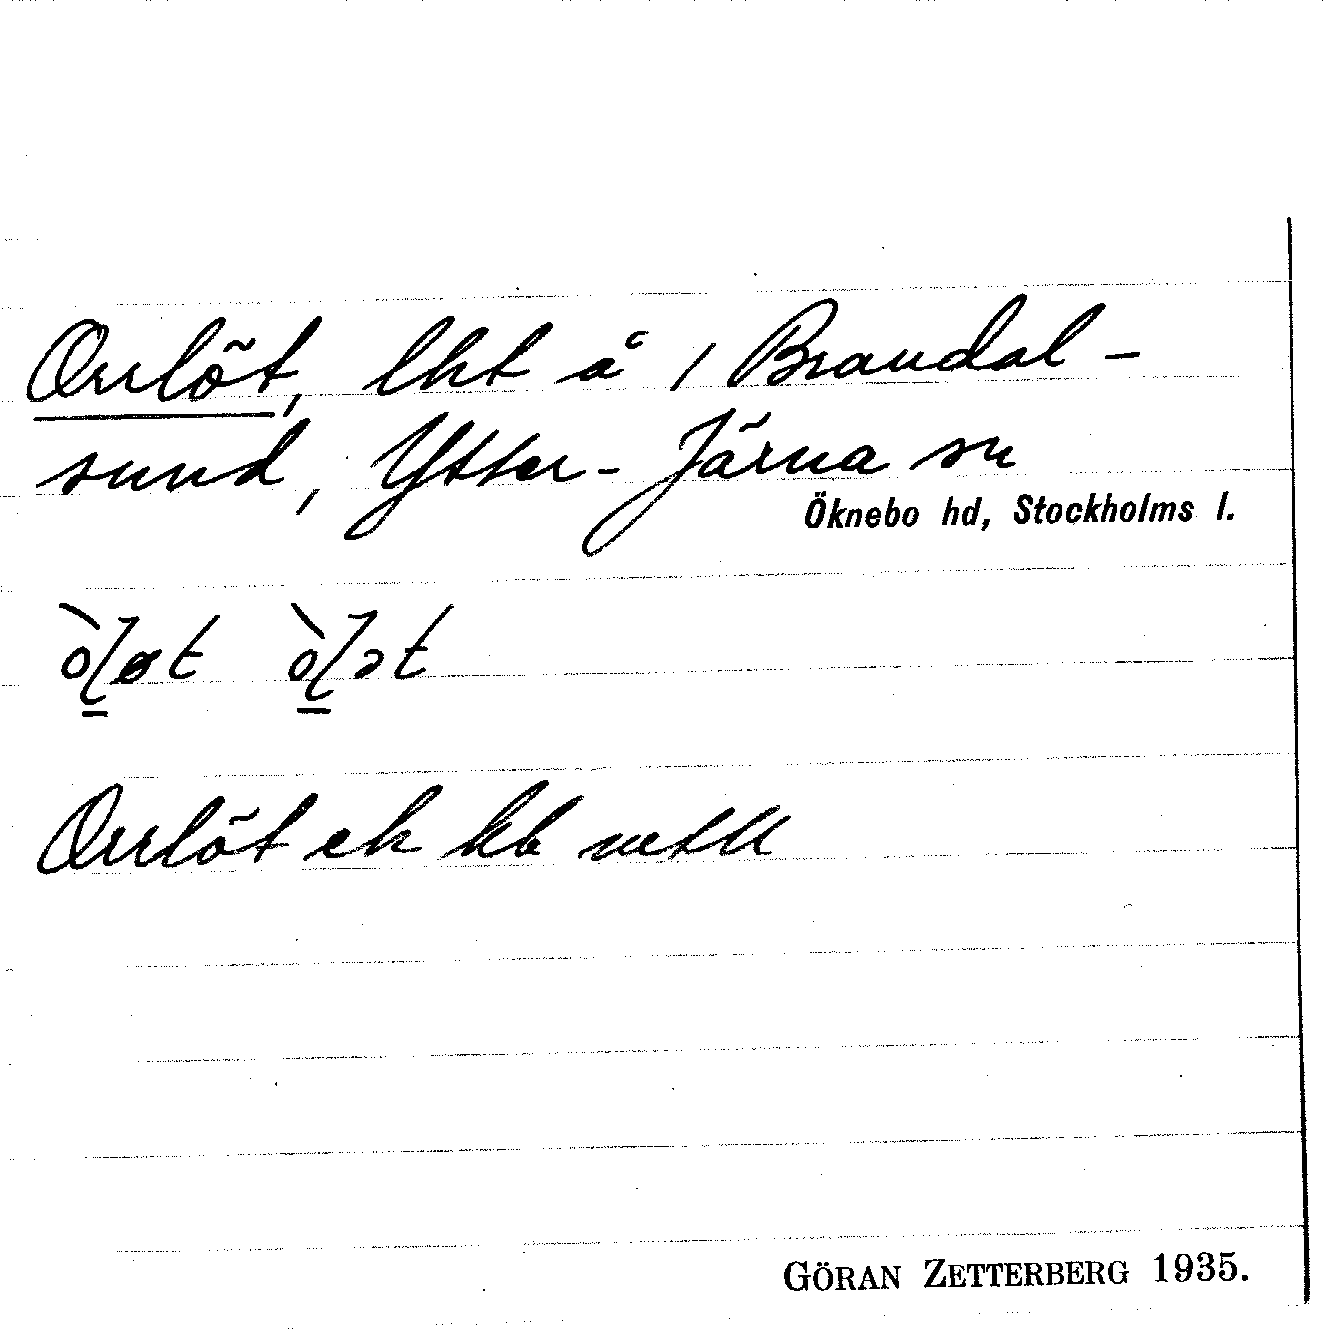 Orrlöt, lht å 1 Brandal-
sund, Ytter-Järna sn
Öknebo hd, Stockholms l.
òl̠øt òl̠ət
Orrlöt ek kb
GÖRAN ZETTERBERG 1935.